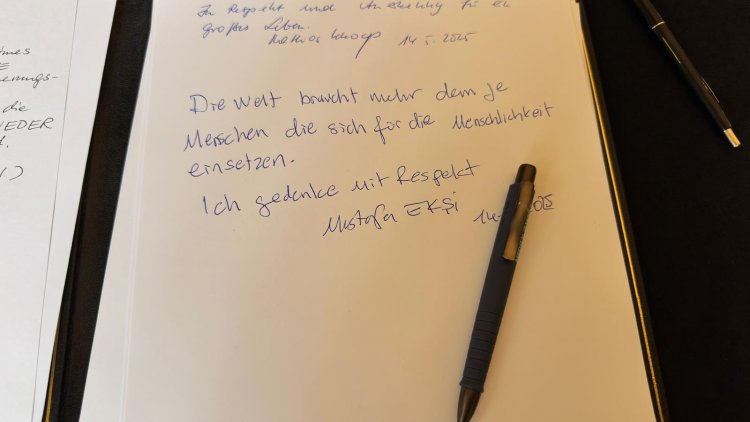 die
In Respekt und Anerkennung für ein
großes Leben.
14.5.2025
Die Welt braucht mehr denn Je
Menschen die sich für die Menschlichkeit
einsetzen.
Ich gedenke mit Respekt
Mustafa EKŞi 14- 2025